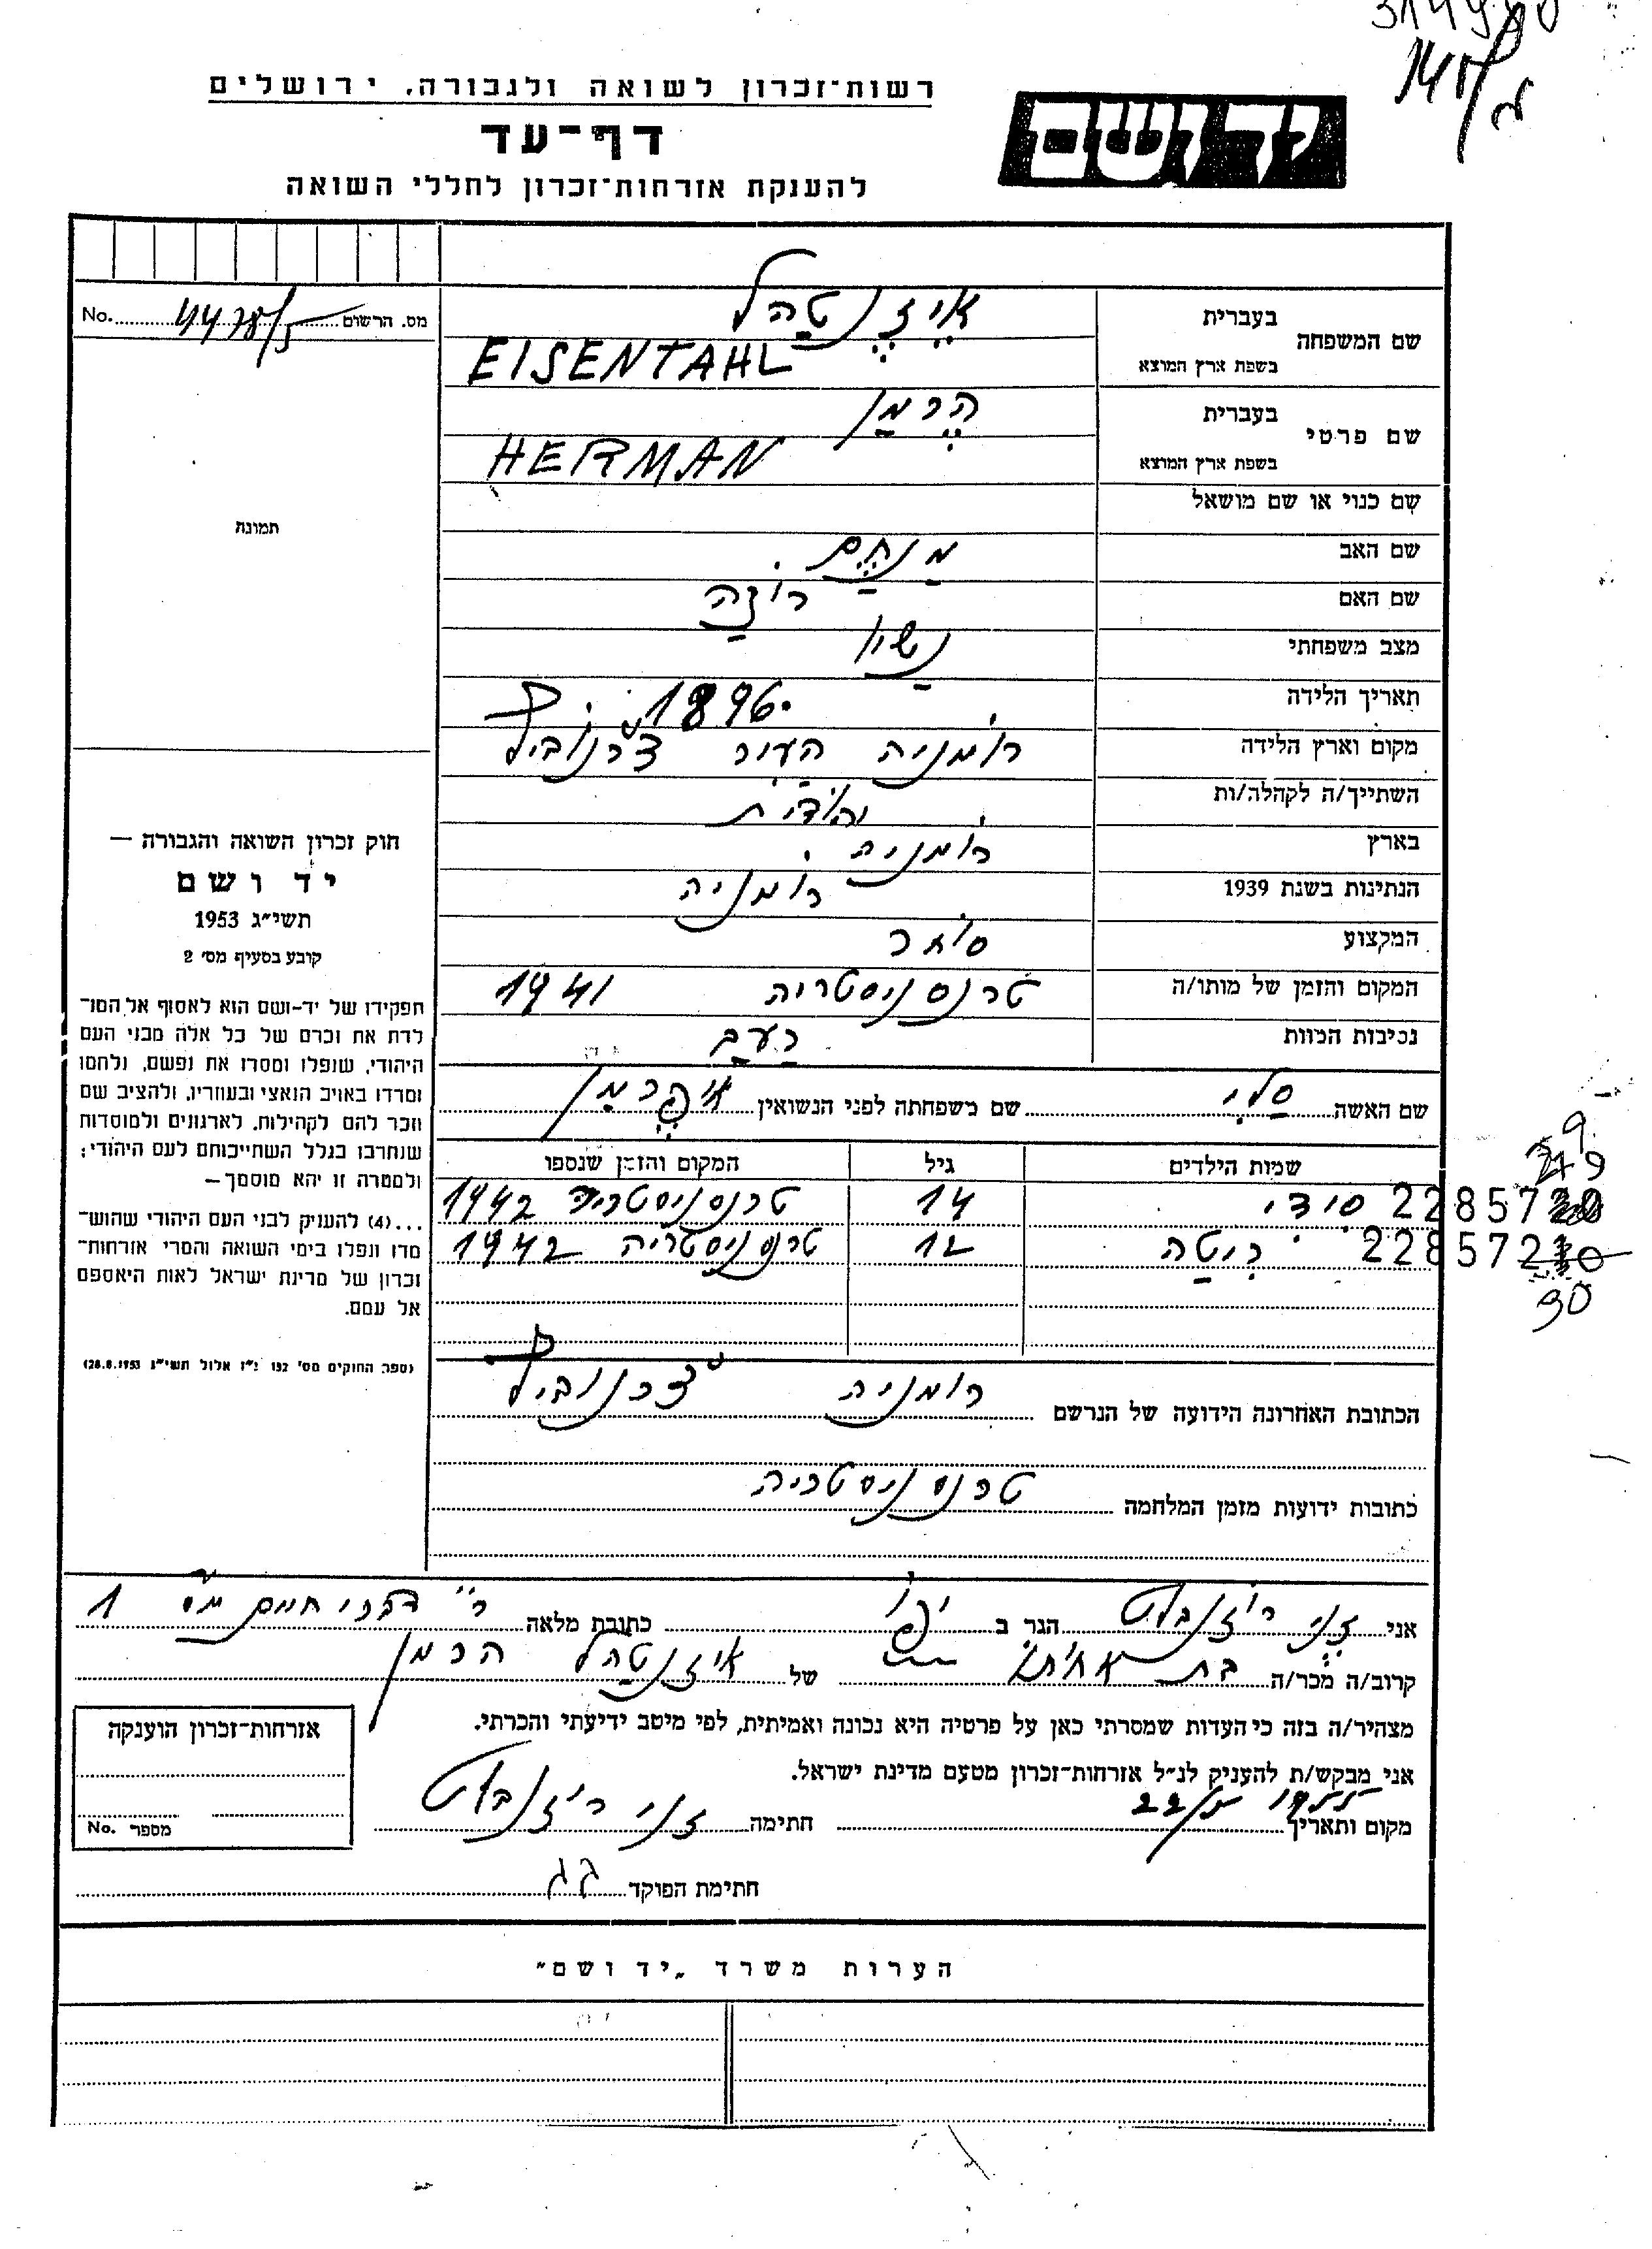 רשות־זכרון לשואה ולגבורה, ירושלים
דף־עד
להענקת אזרחות־זכרון לחללי השואה
יד ושם
מס. הרשום No.
שם המשפחה בעברית אייזנטהל
בשפת ארץ המוצא EISENTAHL
שם פרטי בעברית הרמן
בשפת ארץ המוצא HERMAN
שם כנוי או שם מושאל
תמונה
שם האב מנחם
שם האם רוזה
מצב משפחתי נשוי
תאריך הלידה 1896
מקום וארץ הלידה רומניה העיר צ'רנוביץ
השתייך/ה לקהלה/ות יהודית
בארץ רומניה
הנתינות בשנת 1939 רומניה
המקצוע סוחר
המקום והזמן של מותו/ה טרנסניסטריה 1941
נסיבות המוות רעב
שם האשה סלי שם משפחתה לפני הנשואין
שמות הילדים גיל המקום והזמן שנספו
2285729 סידי 14 טרנסניסטריה 1942
2285730 ריטה 12 טרנסניסטריה 1942
חוק זכרון השואה והגבורה —
יד ושם
תשי״ג 1953
קובע בסעיף מס׳ 2
תפקידו של יד־ושם הוא לאסוף אל המו־
לדת את זכרם של כל אלה מבני העם
היהודי, שנפלו ומסרו את נפשם, נלחמו
ומרדו באויב הנאצי ובעוזריו, ולהציב שם
וזכר להם לקהילות, לארגונים ולמוסדות
שנחרבו בגלל השתייכותם לעם היהודי;
ולמטרה זו יהא מוסמך —
...(4) להעניק לבני העם היהודי שהוש־
מדו ונפלו בימי השואה והמרי אזרחות־
זכרון של מדינת ישראל לאות היאספם
אל עמם.
(ספר החוקים מס׳ 132 י״ז אלול תשי״ג 28.8.1953)
הכתובת האחרונה הידועה של הנרשם רומניה צ'רנוביץ
כתובות ידועות מזמן המלחמה טרנסניסטריה
אני ז'ני רוזנבלט הגר ב יפו כתובת מלאה 1
קרוב/ה מכר/ה בת אחותו של איזנטהל הרמן
מצהיר/ה בזה כי העדות שמסרתי כאן על פרטיה היא נכונה ואמיתית, לפי מיטב ידיעתי והכרתי.
אני מבקש/ת להעניק לנ״ל אזרחות־זכרון מטעם מדינת ישראל.
מקום ותאריך 22/5 1955 חתימה ז'ני רוזנבלט
חתימת הפוקד
אזרחות־זכרון הוענקה
מספר No.
הערות משרד „יד ושם״